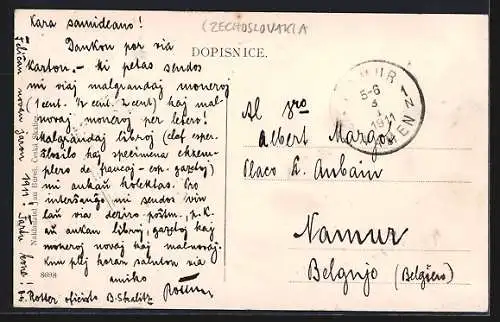 Kara samideano!
(ZECHOSLOVAKIA
DOPISNICE.
Dankon por via
karton. - Mi petas sendos
mi viaj malgrandaj moneroj
(1 cent. ½ cent. 2 cent) kaj mal-
novaj moneroj per letero!
Malgrandaj libroj (ĉlaf esper.
ŝlosilo kaj specimena ekzem-
plero de francaj-esp. gazetoj)
mi ankaŭ kolektas. Pro
interŝanĝo mi sendos vin
laŭ via deziro poŝtm., p. k.
aŭ ankaŭ libroj, gazetoj kaj
moneroj novaj kaj malnovaj.
Kun plej koran saluton via
amiko
Rotter
Rotter oficisto B. Skalitz
Feliĉan novan jaron 1911!
Nakladatel Jan Bureš, Česká Skalice.
8698
NAMUR 1
5-6
3
1911
Al sro
Albert Margos
Place S. Aubain
Namur
Belgujo (Belgien)